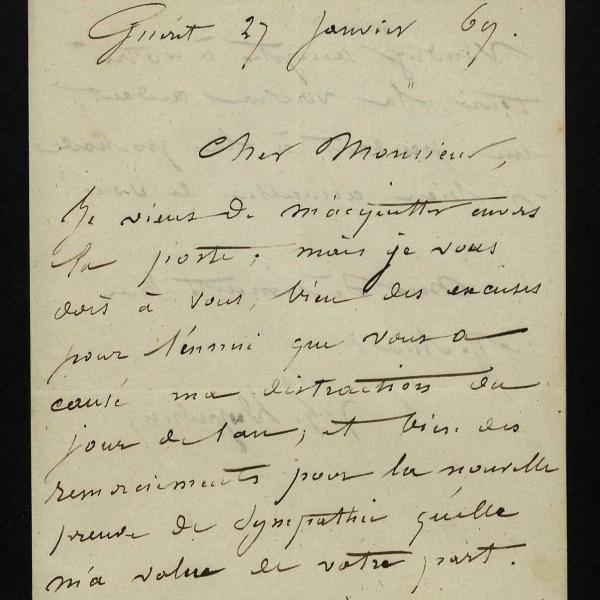 Guéret 27 Janvier 69.
Cher Monsieur,
Je viens de m'acquitter envers
la poste; mais je vous
dois à vous, bien des excuses
pour l'ennui que vous a
causé ma distraction du
jour de l'an, et bien des
remerciements pour la nouvelle
preuve de sympathie qu'elle
m'a value de votre part.